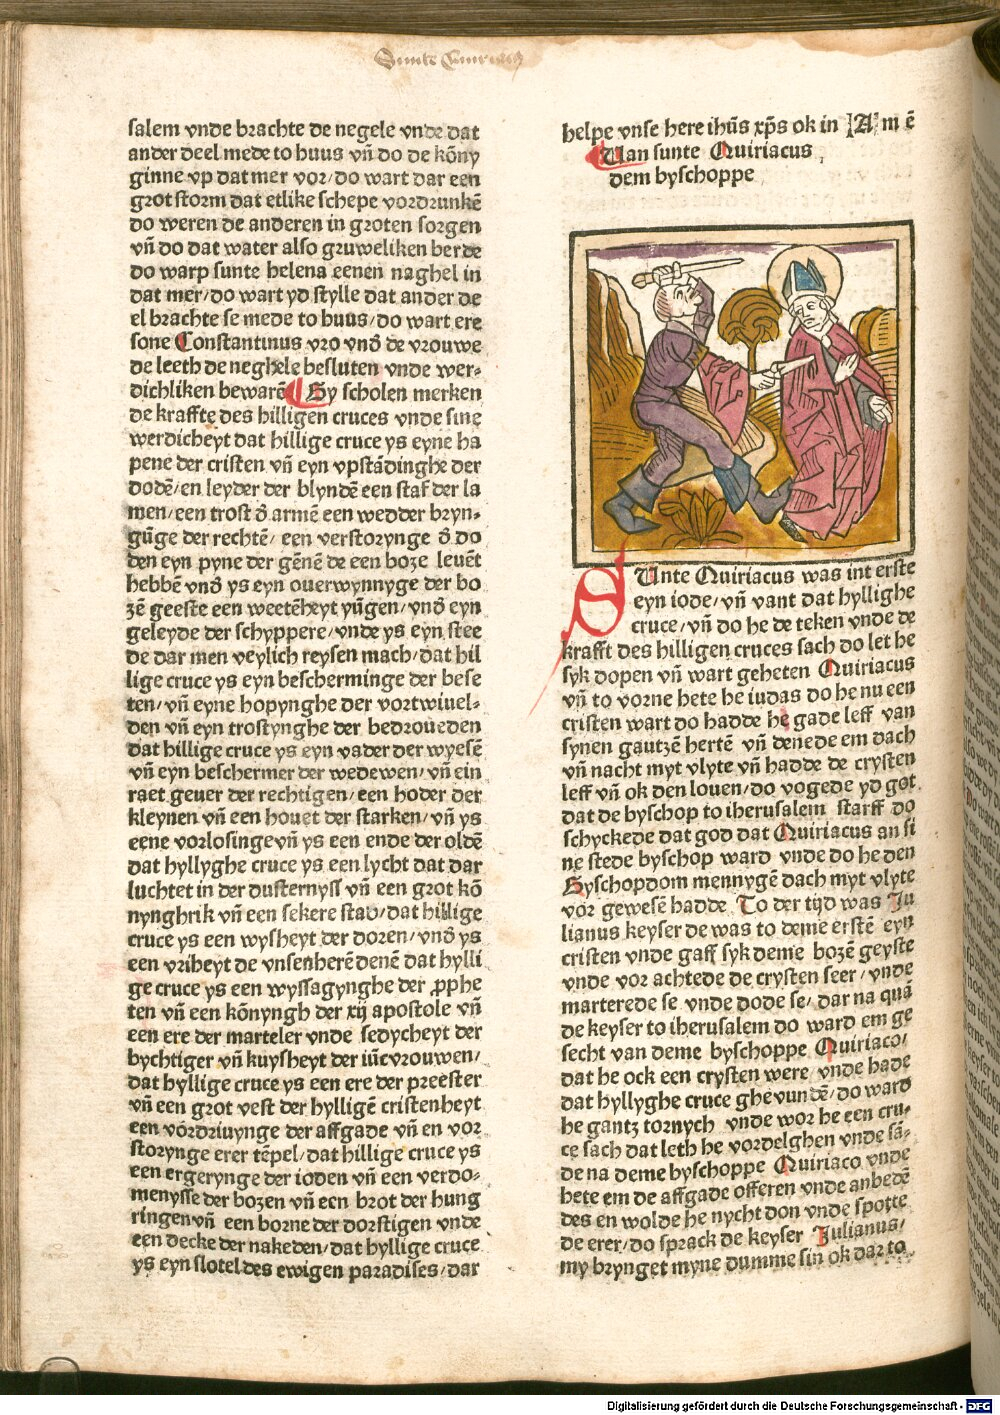 Sunte Quiriacus
salem vnde brachte de negele vnde dat
ander deel mede to huus vn̄ do de kȫny
ginne vp dat mer vor/do wart dar een
grot storm dat etlike schepe vordrunkē
do weren de anderen in groten sorgen
vn̄ do dat water also gruweliken berde
do warp sunte helena eenen naghel in
dat mer/do wart yd stylle dat ander de
el brachte se mede to huus/do wart ere
sone Constantinus vro vnd̄ de vrouwe
de leeth de neghele besluten vnde wer-
dichliken bewarē Gy scholen merken
de kraffte des hilligen cruces vnde sine
werdicheyt dat hillige cruce ys eyne ha
pene der cristen vn̄ eyn vpstādinghe der
dodē/en leyder der blyndē een staf der la
men/een trost d̄ armē een wedder bryn-
gūge der rechtē/ een verstorynge d̄ do
den eyn pyne der gēnē de een boze leuēt
hebbē vnd̄ ys eyn ouerwynnyge der bo
zē geeste een weetēheyt yūgen/vnd̄ eyn
geleyde der schyppere/vnde ys eyn stee
de dar men veylich reysen mach/dat hil
lige cruce ys eyn bescherminge der bese
ten/vn̄ eyne hopynghe der vortwiuel-
den vn̄ eyn trostynghe der bedroueden
dat hillige cruce ys eyn vader der wyesē
vn̄ eyn beschermer der wedewen/vn̄ ein
raet geuer der rechtigen/een hoder der
kleynen vn̄ een houet der starken/vn̄ ys
eene vorlosinge vn̄ ys een ende der oldē
dat hyllyghe cruce ys een lycht dat dar
luchtet in der dusternyss vn̄ een grot kō
nynghrik vn̄ een sekere stad/dat hillige
cruce ys een wysheyt der doren/vnd̄ ys
een vriheyt de vnsenherē denē dat hylli
ge cruce ys een wyssagynghe der ꝓphe
ten vn̄ een kȫnyngh der xij apostole vn̄
een ere der marteler vnde sedycheyt der
bychtiger vn̄ kuysheyt der iūcvrouwen/
dat hyllige cruce ys een ere der preester
vn̄ een grot vest der hylligē cristenheyt
een vȫrdriuynge der affgade vn̄ en vor
storynge erer tēpel/dat hillige cruce ys
een ergerynge der ioden vn̄ een verdo-
menysse der bozen vn̄ een brot der hung
ringen vn̄ een borne der dorstigen vnde
een decke der nakeden/dat hyllige cruce
ys eyn slotel des ewigen paradises/dar
helpe vnse here ihūs xp̄s ok in Amē
Uan sunte Quiriacus
dem byschoppe
SUnte Quiriacus was int erste
eyn iode/vn̄ vant dat hyllighe
cruce/vn̄ do he de teken vnde de
krafft des hilligen cruces sach do let he
syk dopen vn̄ wart geheten Quiriacus
vn̄ to vorne hete he iudas do he nu een
cristen wart do hadde he gade leff van
synen gautzē hertē vn̄ denede em dach
vn̄ nacht myt vlyte vn̄ hadde de crysten
leff vn̄ ok den louen/do vogede yd got
dat de byschop to iherusalem starff do
schyckede dat god dat Quiriacus an si
ne stede byschop ward vnde do he den
Byschopdom mennygē dach myt vlyte
vor gewesē hadde To der tijd was Ju
lianus keyser de was to deme erstē eyn
cristen vnde gaff syk deme bozē geyste
vnde vor achtede de crysten seer/vnde
marterede se vnde dode se/dar na quā
de keyser to iherusalem do ward em ge
secht van deme byschoppe Quiriaco/
dat he ock een crysten were/vnde hade
dat hyllyghe cruce ghevundē/do ward
he gantz tornych vnde wor he een cru-
ce sach dat leth he vordelghen vnde sā-
de na deme byschoppe Quiriaco vnde
hete em de affgade offeren vnde anbedē
des en wolde he nycht don vnde spotte
de erer/do sprack de keyser Julianus/
my brynget myne dumme sin ok dar to
Digitalisierung gefördert durch die Deutsche Forschungsgemeinschaft - DFG